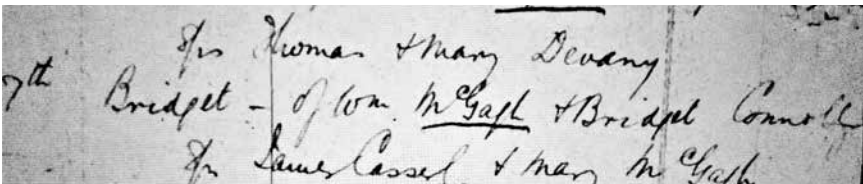 Sprs Thomas & Mary Devany
7th Bridget - of Wm. McGagh & Bridget Connoll
Sprs James Casserl & Mary McGagh